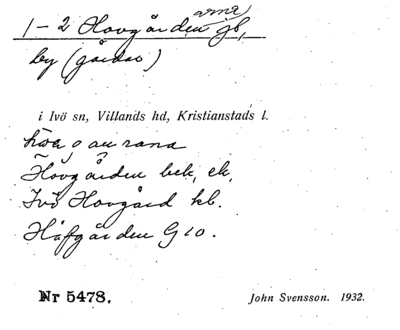 arna
1-2 Hovgården jb,
by (gårdar)
i Ivö sn, Villands hd, Kristianstads l.
Hovgården bek, ek,
Ivö Hovgård kb.
Håfgården G10.
Nr 5478.
John Svensson. 1932.